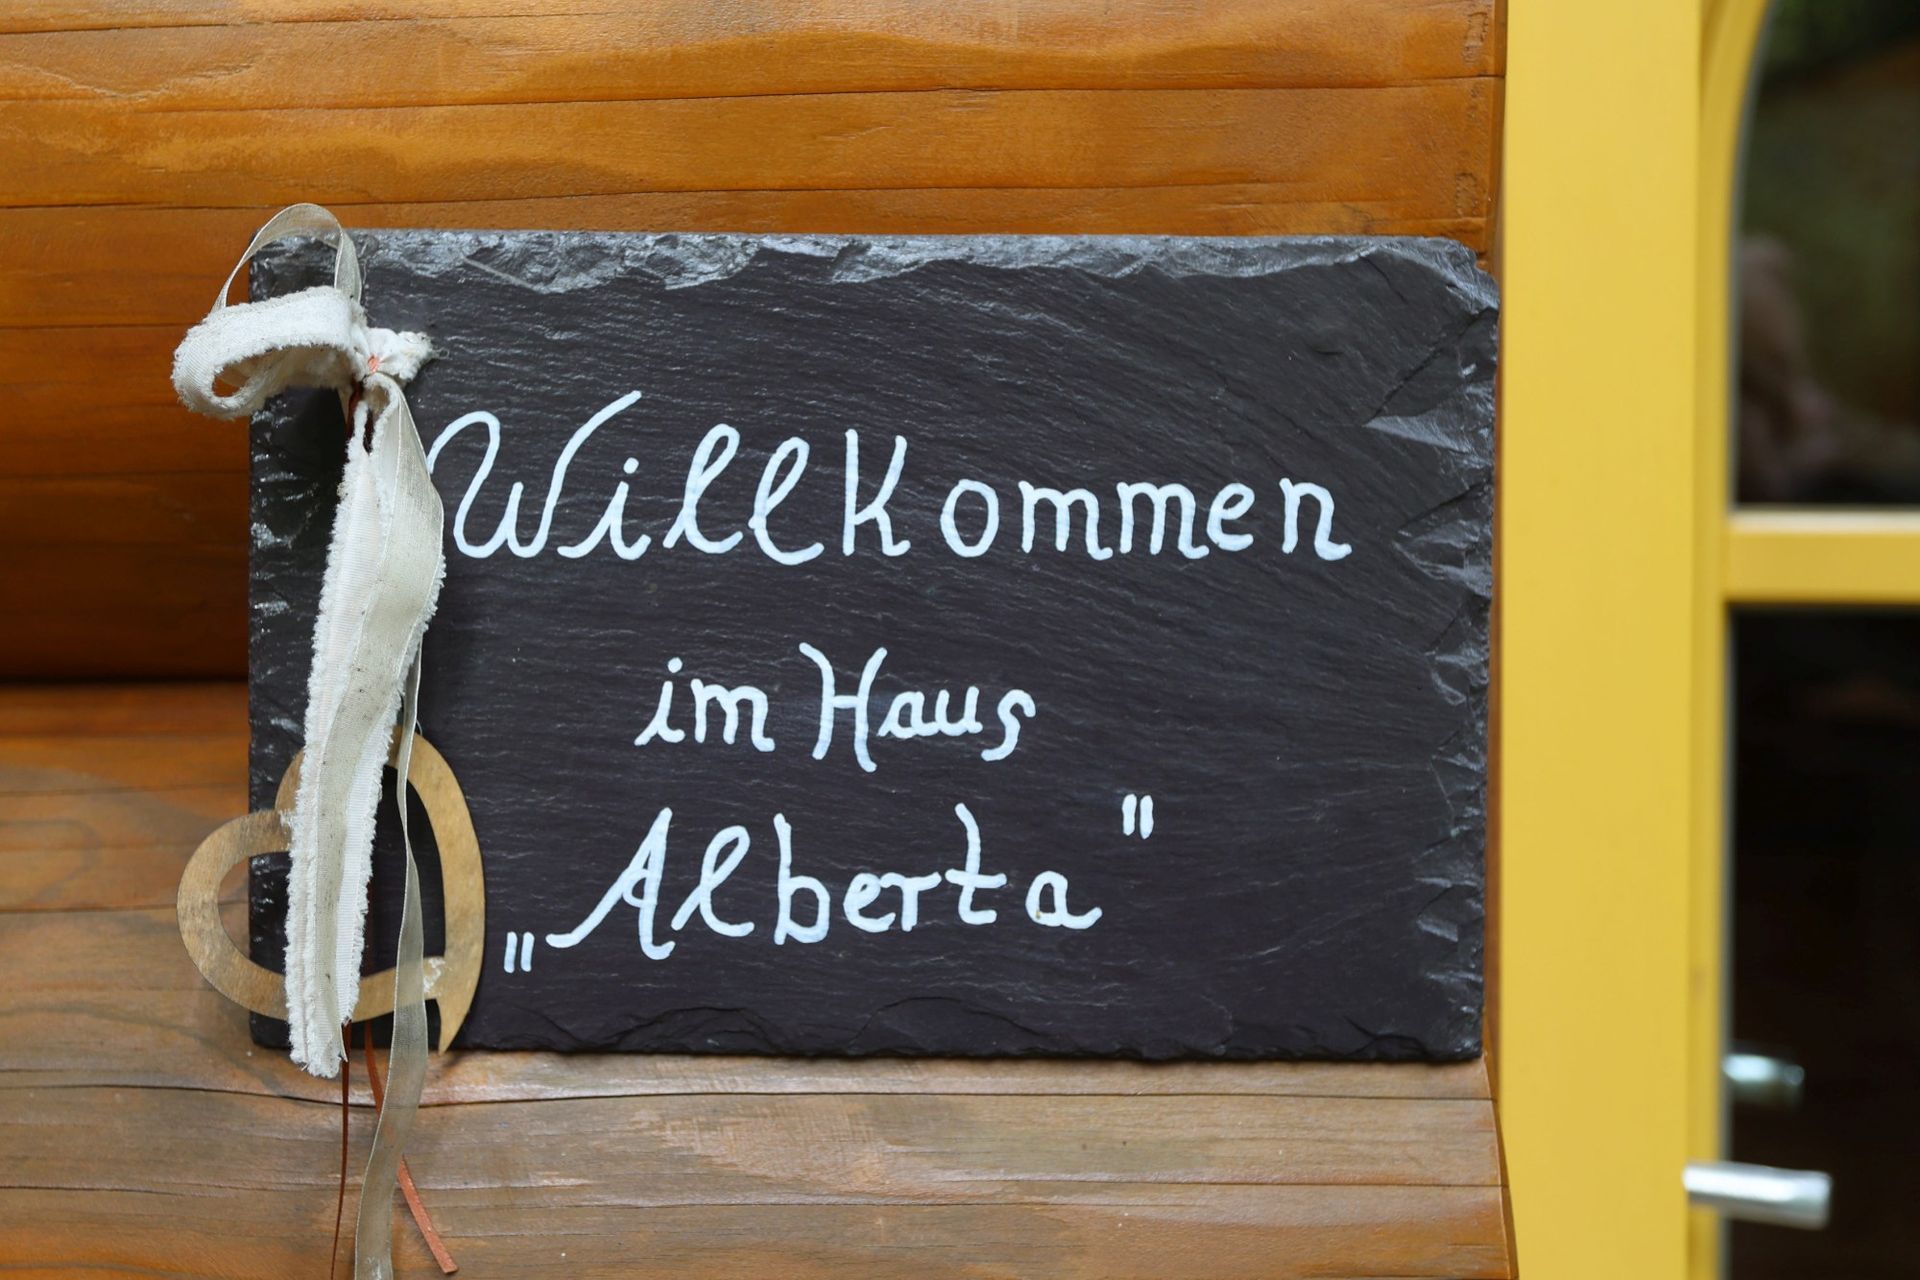 Willkommen
im Haus
„Alberta"